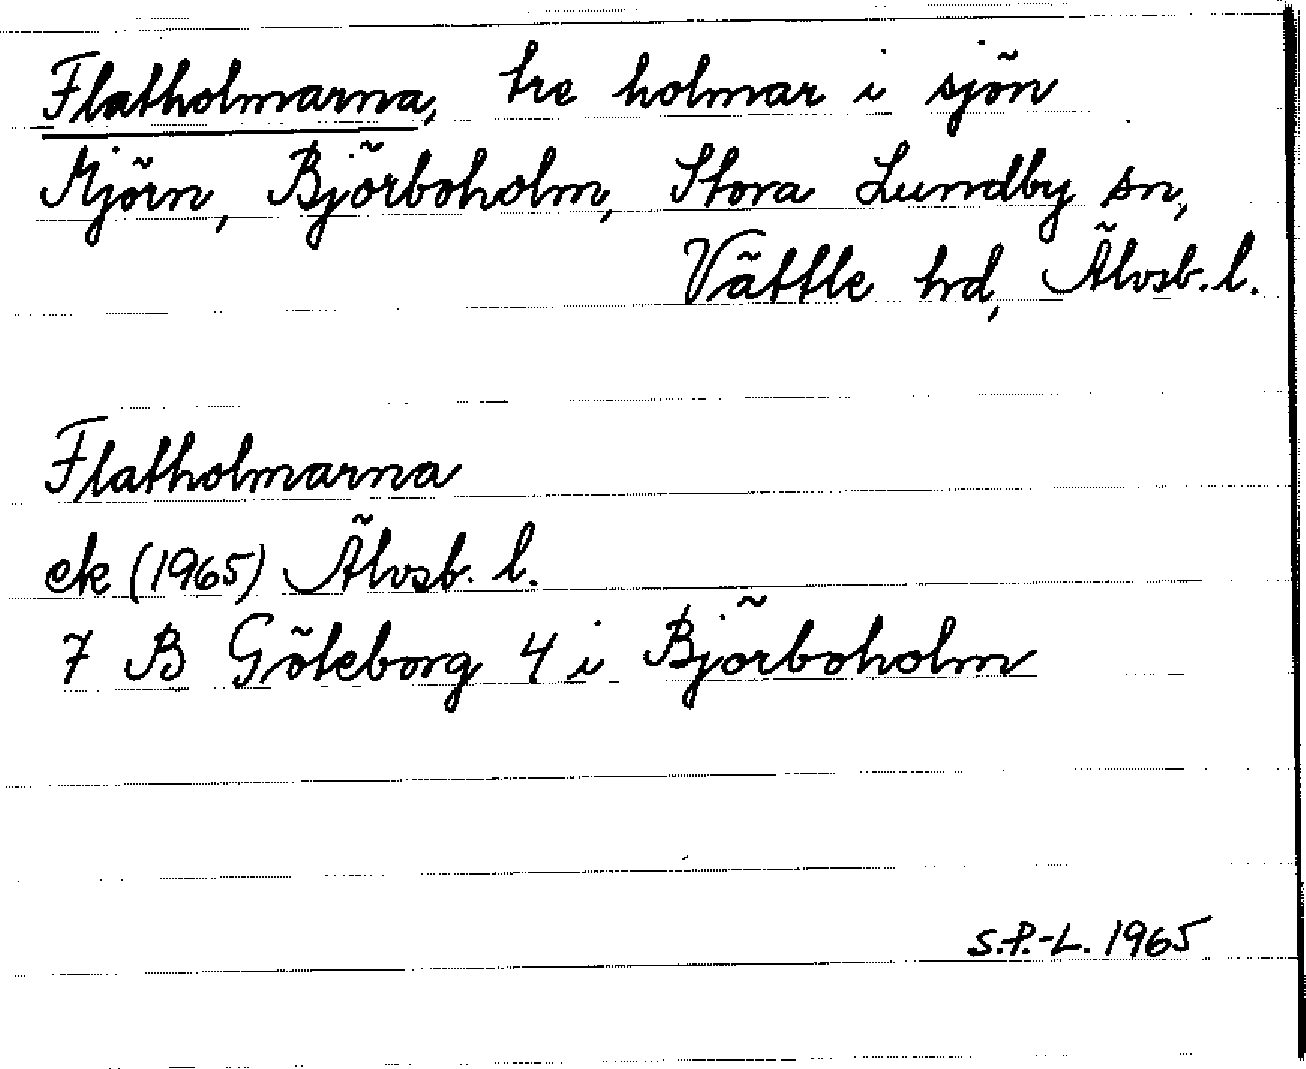 Flatholmarna, tre holmar i sjön
Mjörn, Björboholm, Stora Lundby sn,
Vättle hd, Älvsb. l.
Flatholmarna
ek (1965) Älvsb. l.
7 B Göteborg 4 i Björboholm
S.P.-L. 1965